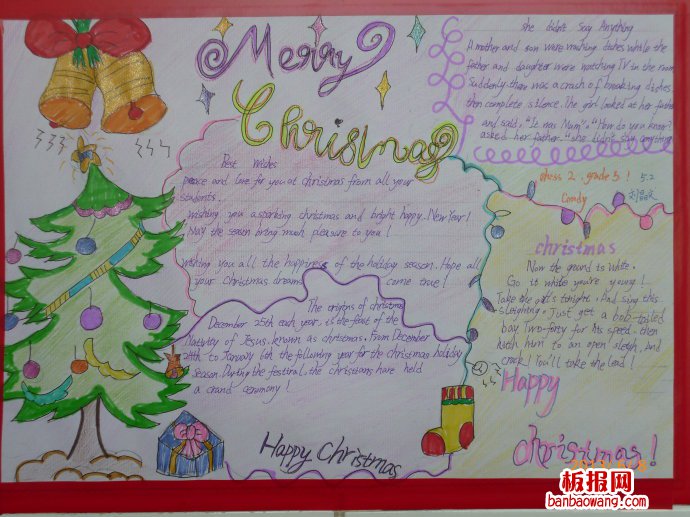 Merry
Christmas
she didn't Say Anything
A mother and son were washing dishes while the
father and daughter were watching TV in the room.
Suddenly there was a crash of breaking dishes.
then complete silence. The girl looked at her father
and said, "It was Mum". "How do you know?"
asked her father. "she didn't say anything
class 2, grade 5 ! 5.2
Candy
Best Wishes
peace and love for you at christmas from all your
students.
wishing you a sparking christmas and bright happy New Year!
May the season bring much pleasure to you!
wishing you all the happiness of the holiday season. Hope all
your Christmas dreams come true!
The origins of christmas
December 25th each year, is the feast of the
Nativity of Jesus, known as christmas. From December
24th to January 6th the following year for the christmas holiday
season. During the festival, the christians have held
a grand ceremony!
Happy Christmas
christmas
Now the ground is white.
Go it white you're young!
Take the girl's tonight. And sing this
sleighing. Just get a bob-tailed
bay Two-forty for his speed. then
him to an open sleigh, and
crack! You'll take the lead!
Happy
christmas!
板报网
banbaowang.com